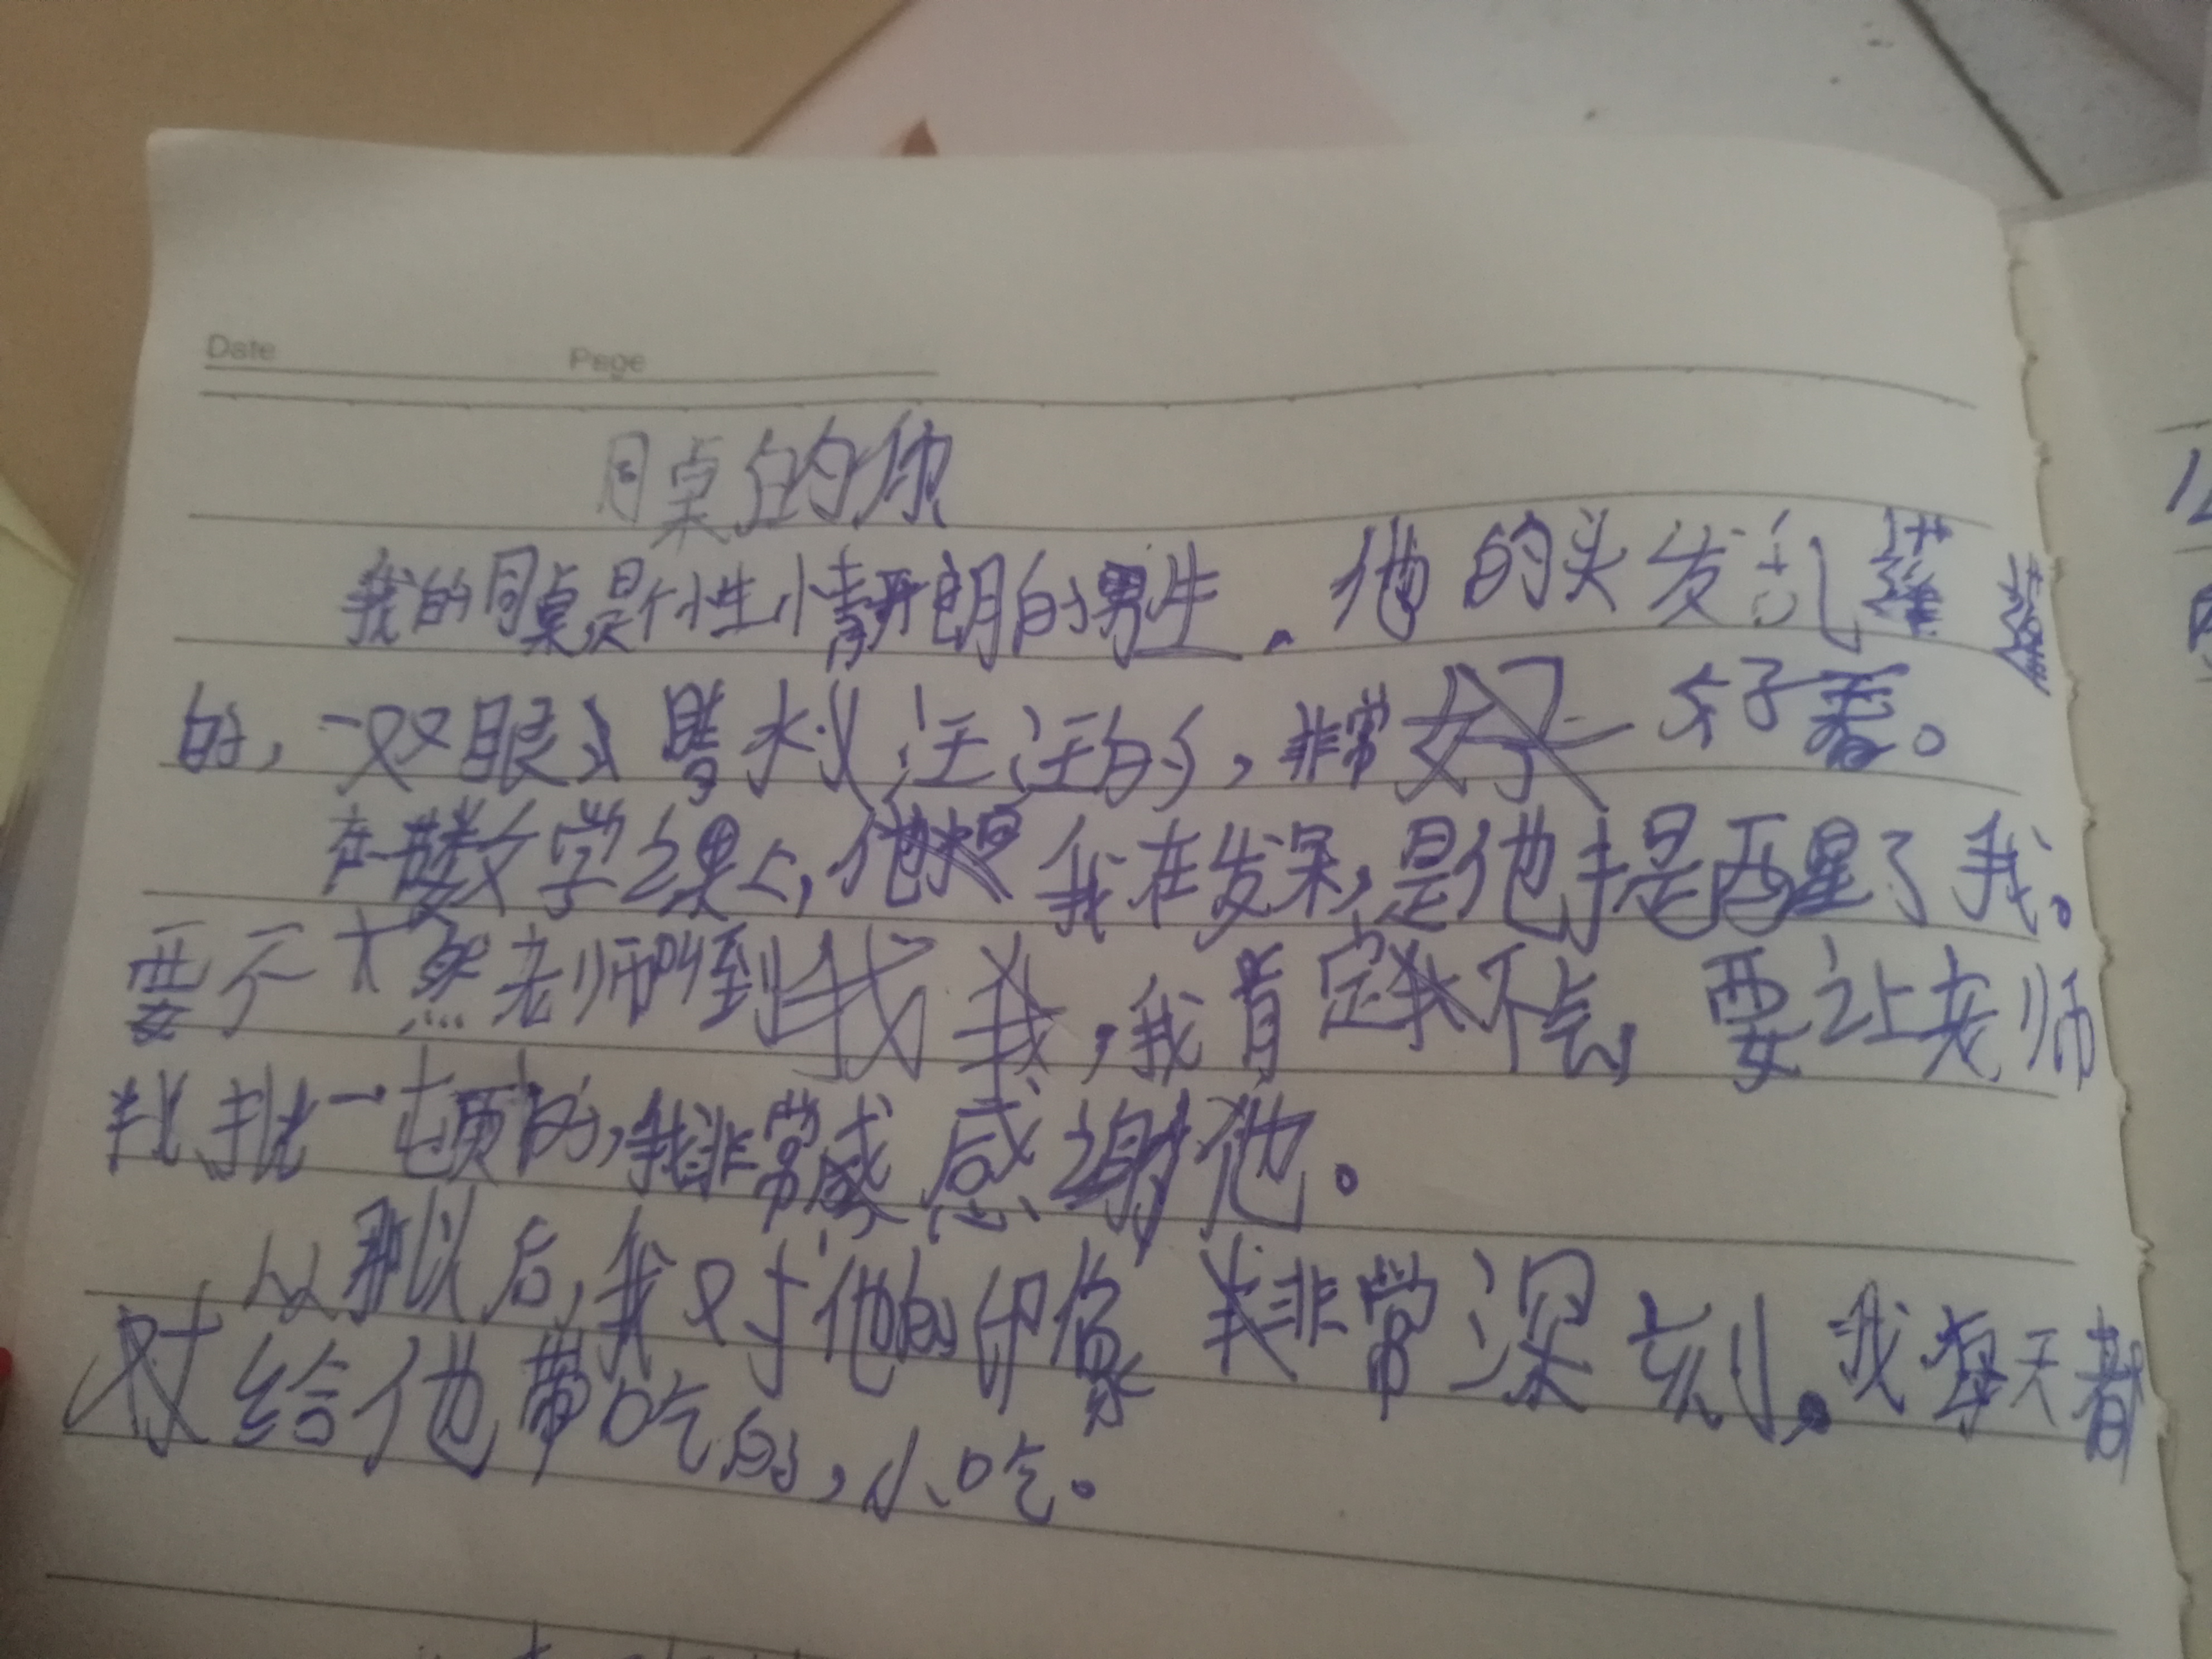 Date Page
同桌的你
我的同桌是个性情开朗的男生.他的头发乱蓬蓬
的,一双眼睛水汪汪的,非常好看。
在数学课上,我在发呆,是他提醒了我。
要不然老师叫到我,我肯定不会,要让老师
批一顿的,我非常感谢他。
从那以后,我对他的印像非常深刻。我每天都
给他带吃的,小吃。